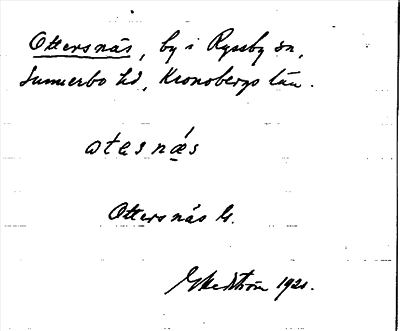 Ottersnäs, by i Ryssby sn,
Sunnerbo hd, Kronobergs län.
otesnǽ̣s
Ottersnäs G.
1921.